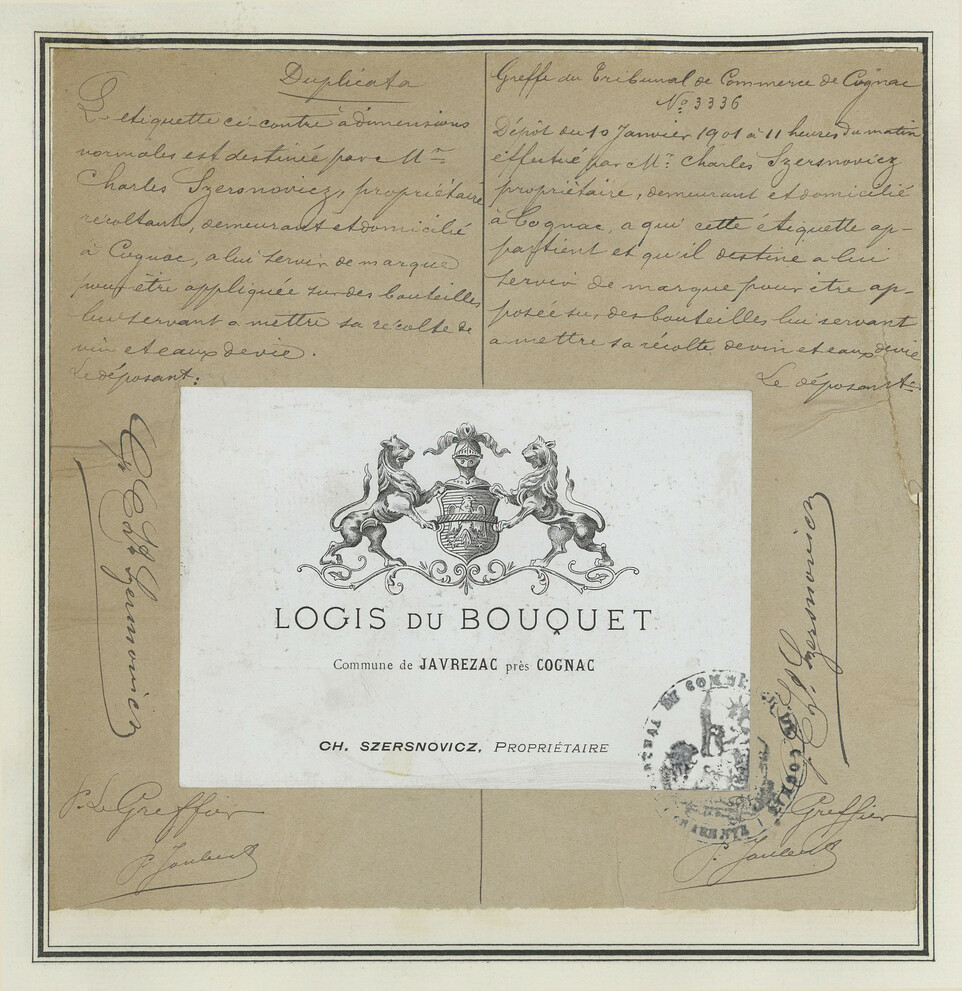 Duplicata
L'etiquette ci-contre à dimensions
normales est destinée par Mr
Charles Szersnovicz, propriétaire
récoltant, demeurant et domicilié
à Cognac, a lui servir de marque
pour être appliquée sur des bouteilles
lui servant a mettre sa récolte de
vin et eaux de vie.
Le déposant:
Ch Szersnovicz
P. Le Greffier
P. Joubert
Greffe du Tribunal de Commerce de Cognac
No 3336
Dépôt du 10 Janvier 1901 à 11 heures du matin
effectué par Mr Charles Szersnovicz
propriétaire, demeurant et domicilié
à Cognac, a qui cette étiquette ap-
partient et qu'il destine a lui
servir de marque pour être ap-
posée sur des bouteilles lui servant
a mettre sa récolte de vin et eaux de vie
Le déposant:
Ch Szersnovicz
Greffier
P. Joubert
LOGIS DU BOUQUET
Commune de JAVREZAC près COGNAC
CH. SZERSNOVICZ, PROPRIÉTAIRE